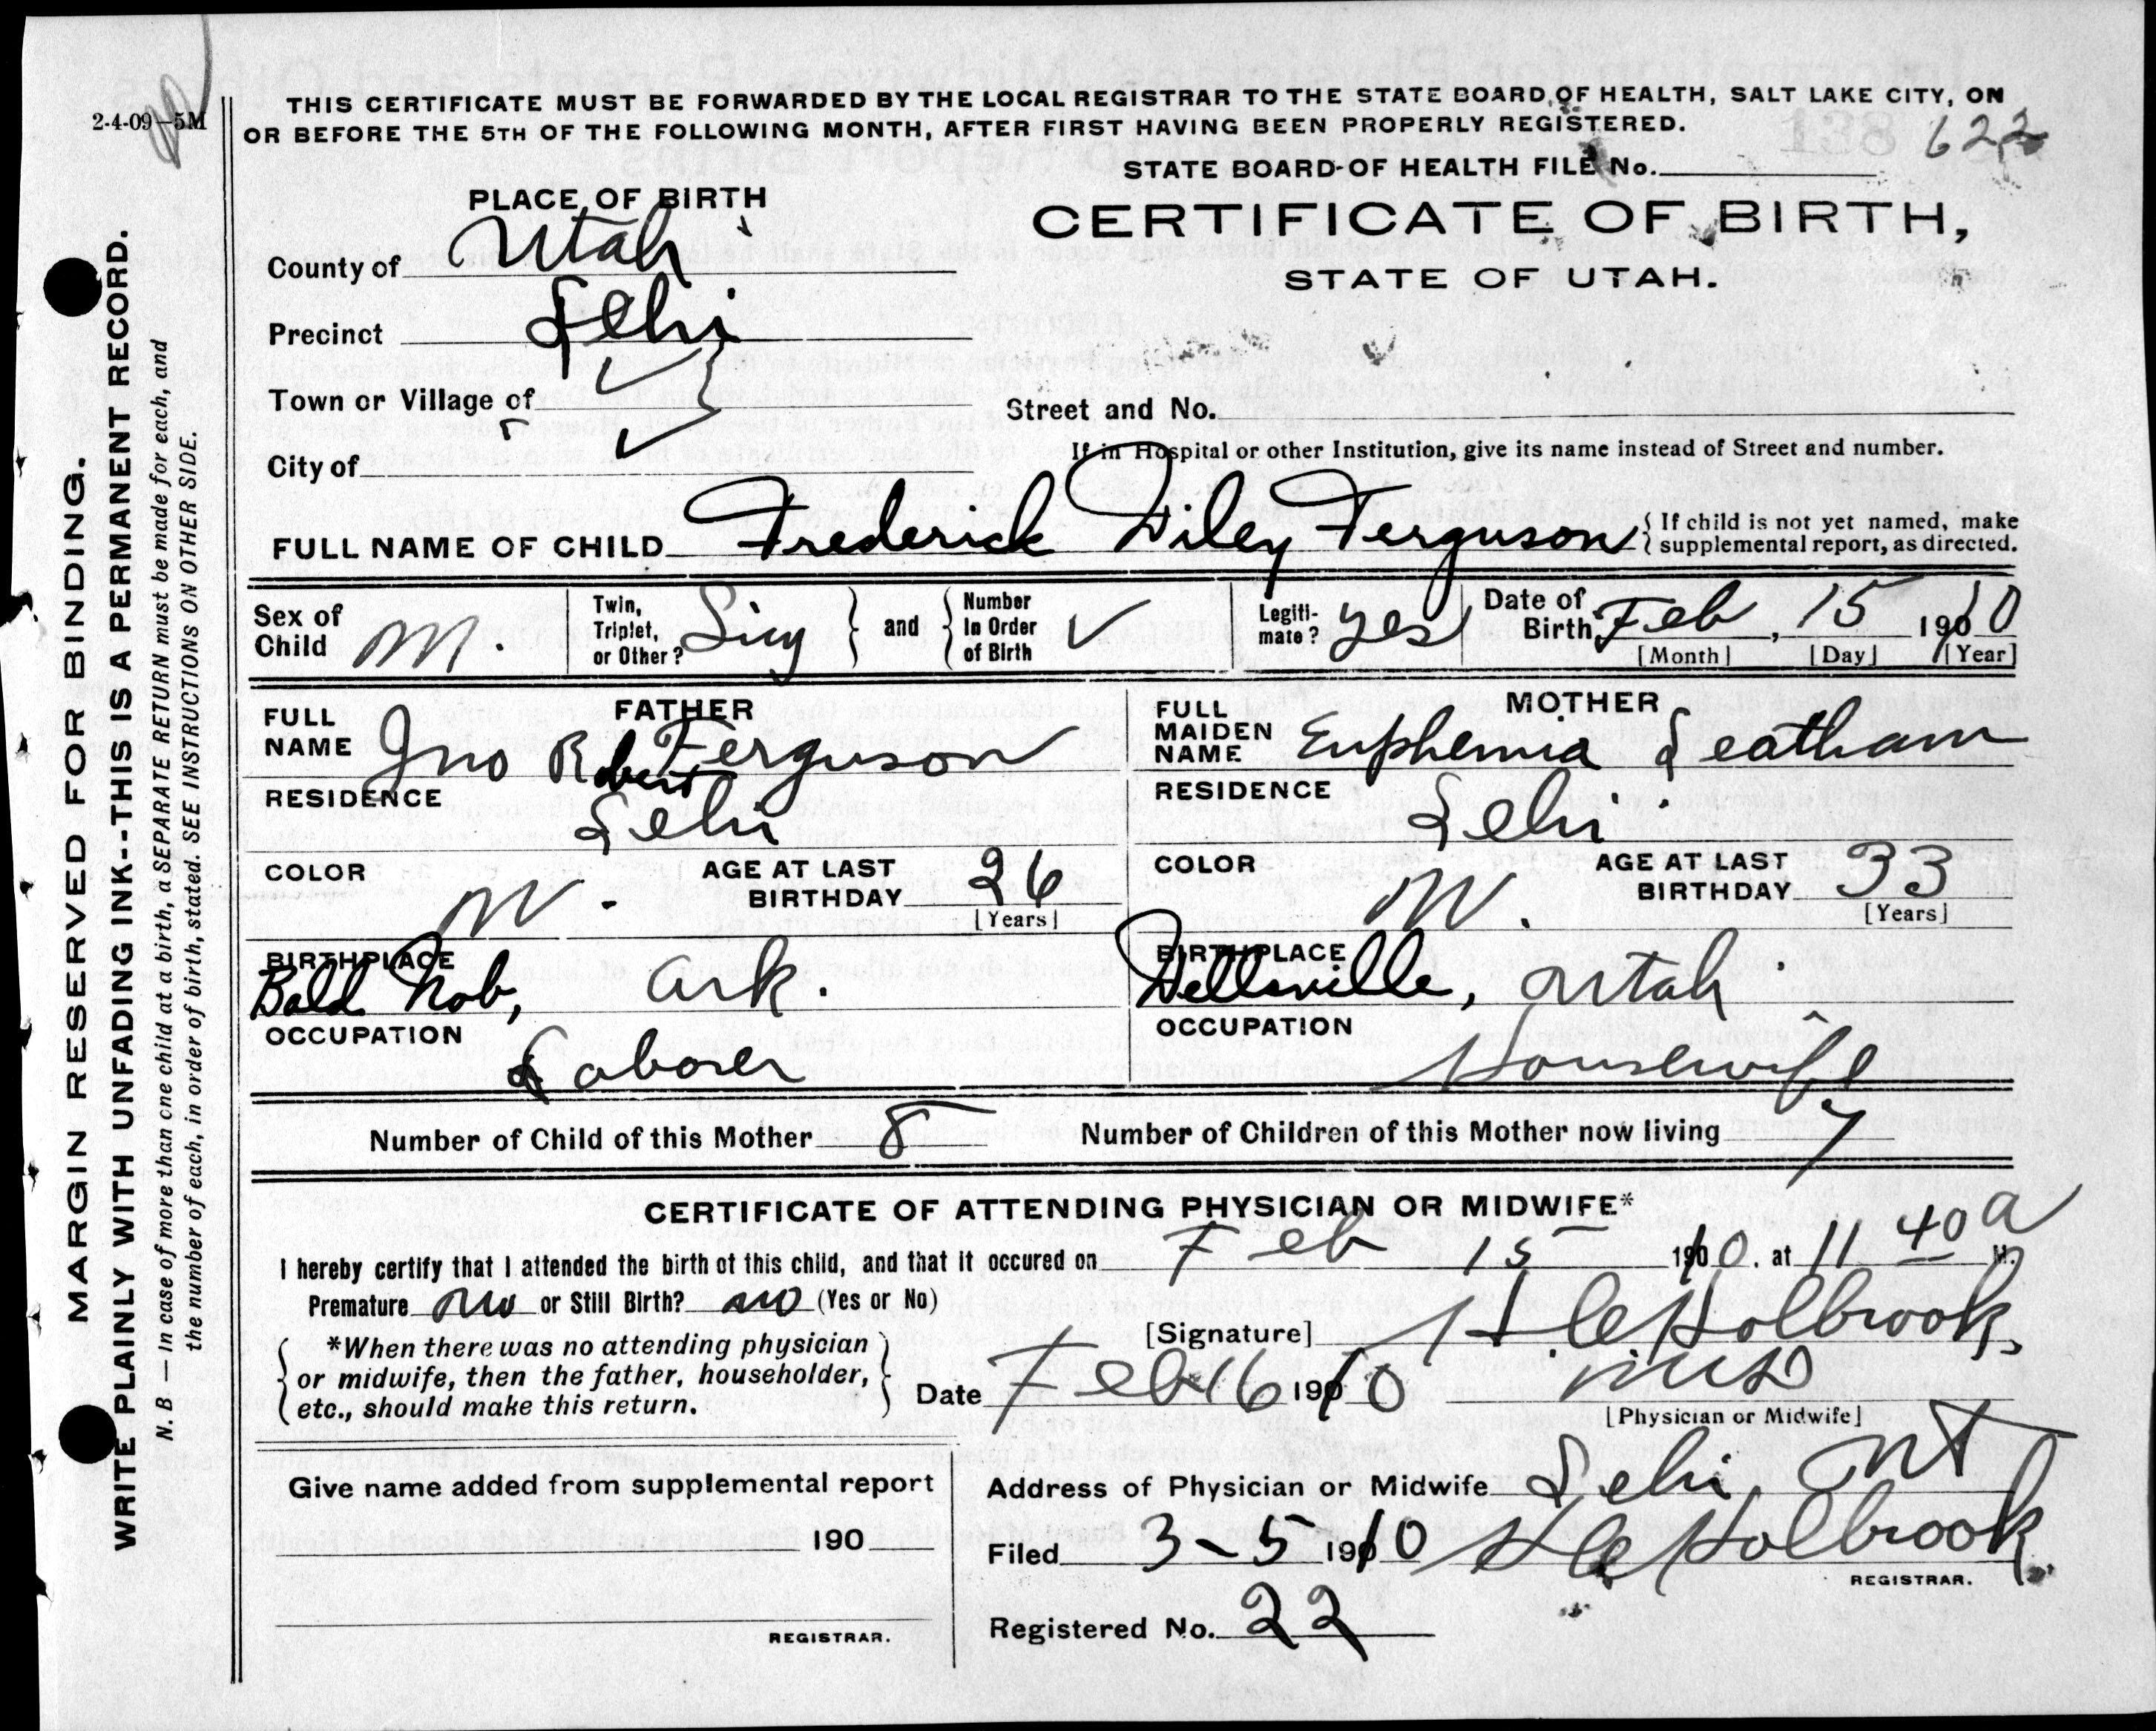 2-4-09—5M
THIS CERTIFICATE MUST BE FORWARDED BY THE LOCAL REGISTRAR TO THE STATE BOARD OF HEALTH, SALT LAKE CITY, ON
OR BEFORE THE 5TH OF THE FOLLOWING MONTH, AFTER FIRST HAVING BEEN PROPERLY REGISTERED.
STATE BOARD OF HEALTH FILE No.
PLACE OF BIRTH
CERTIFICATE OF BIRTH,
STATE OF UTAH.
County of Utah
Precinct Lehi
Town or Village of
Street and No.
If in Hospital or other Institution, give its name instead of Street and number.
City of
FULL NAME OF CHILD Frederick Wiley Ferguson { If child is not yet named, make
supplemental report, as directed.
Sex of Child M. Twin, Triplet, or Other? Sing } and { Number In Order of Birth Legiti- mate? yes Date of Birth, Feb, 15 1910
[Month] [Day] [Year]
FATHER
FULL NAME Jno Robert Ferguson
RESIDENCE
Lehi
COLOR W. AGE AT LAST BIRTHDAY 26
[Years]
BIRTHPLACE
Bald Nob, Ark.
OCCUPATION
Laborer
MOTHER
FULL MAIDEN NAME Euphemia Leatham
RESIDENCE
Lehi
COLOR W. AGE AT LAST BIRTHDAY 33
[Years]
BIRTHPLACE
Wellsville, Utah
OCCUPATION
Housewife
Number of Child of this Mother 8 Number of Children of this Mother now living 7
CERTIFICATE OF ATTENDING PHYSICIAN OR MIDWIFE*
I hereby certify that I attended the birth of this child, and that it occured on Feb 15 1910. at 11 40 a M.
Premature no or Still Birth? no (Yes or No)
[Signature] Holbrook
*When there was no attending physician
or midwife, then the father, householder,
etc., should make this return.
Date Feb 16 1910 MD
[Physician or Midwife]
Give name added from supplemental report
190
REGISTRAR.
Address of Physician or Midwife Lehi Ut
Filed 3-5 1910 Holbrook
REGISTRAR.
Registered No. 22
MARGIN RESERVED FOR BINDING.
WRITE PLAINLY WITH UNFADING INK--THIS IS A PERMANENT RECORD.
N. B — In case of more than one child at a birth, a SEPARATE RETURN must be made for each, and
the number of each, in order of birth, stated. SEE INSTRUCTIONS ON OTHER SIDE.